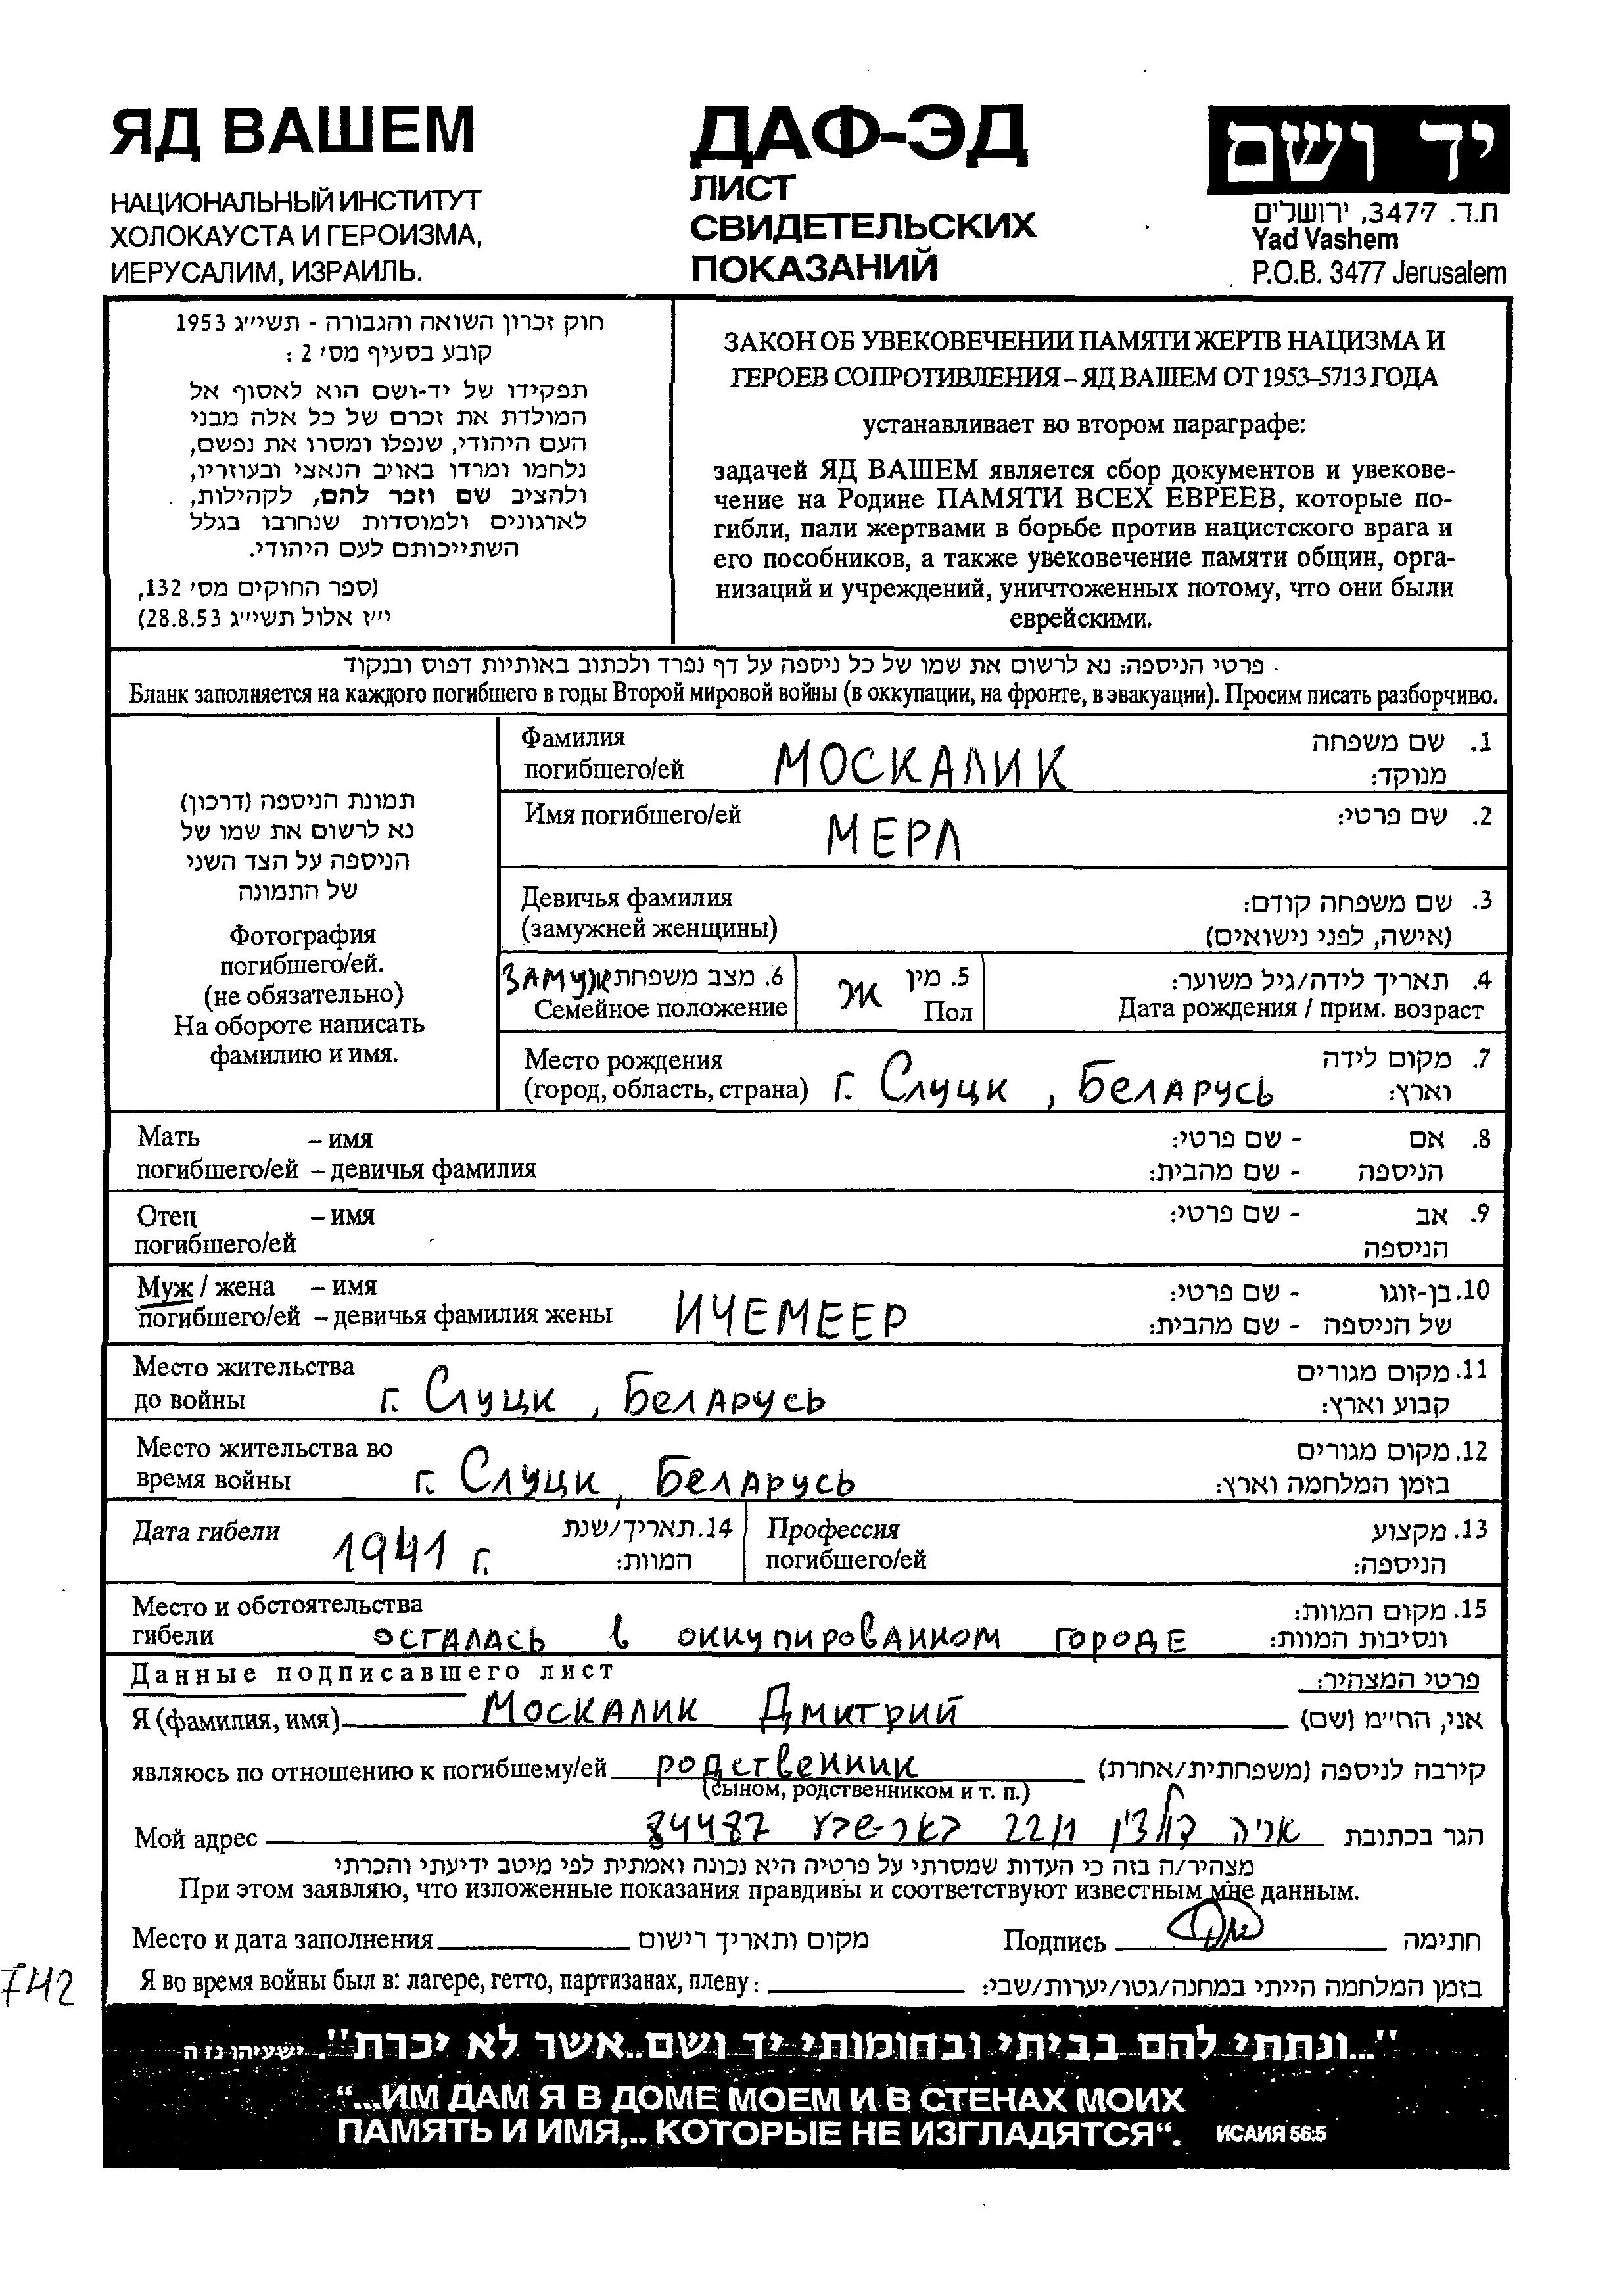 ЯД ВАШЕМ
НАЦИОНАЛЬНЫЙ ИНСТИТУТ
ХОЛОКАУСТА И ГЕРОИЗМА,
ИЕРУСАЛИМ, ИЗРАИЛЬ.
ДАФ-ЭД
ЛИСТ
СВИДЕТЕЛЬСКИХ
ПОКАЗАНИЙ
יד ושם
ת.ד. 3477, ירושלים
Yad Vashem
P.O.B. 3477 Jerusalem
חוק זכרון השואה והגבורה - תשי״ג 1953
קובע בסעיף מס׳ 2 :
תפקידו של יד-ושם הוא לאסוף אל
המולדת את זכרם של כל אלה מבני
העם היהודי, שנפלו ומסרו את נפשם,
נלחמו ומרדו באויב הנאצי ובעוזריו,
ולהציב שם וזכר להם, לקהילות,
לארגונים ולמוסדות שנחרבו בגלל
השתייכותם לעם היהודי.
(ספר החוקים מס׳ 132,
י״ז אלול תשי״ג 28.8.53)
ЗАКОН ОБ УВЕКОВЕЧЕНИИ ПАМЯТИ ЖЕРТВ НАЦИЗМА И
ГЕРОЕВ СОПРОТИВЛЕНИЯ – ЯД ВАШЕМ ОТ 1953–5713 ГОДА
устанавливает во втором параграфе:
задачей ЯД ВАШЕМ является сбор документов и увекове-
чение на Родине ПАМЯТИ ВСЕХ ЕВРЕЕВ, которые по-
гибли, пали жертвами в борьбе против нацистского врага и
его пособников, а также увековечение памяти общин, орга-
низаций и учреждений, уничтоженных потому, что они были
еврейскими.
פרטי הניספה: נא לרשום את שמו של כל ניספה על דף נפרד ולכתוב באותיות דפוס ובנקוד
Бланк заполняется на каждого погибшего в годы Второй мировой войны (в оккупации, на фронте, в эвакуации). Просим писать разборчиво.
תמונת הניספה (דרכון)
נא לרשום את שמו של
הניספה על הצד השני
של התמונה
Фотография
погибшего/ей.
(не обязательно)
На обороте написать
фамилию и имя.
Фамилия 1. שם משפחה
погибшего/ей МОСКАЛИК מנוקד:
Имя погибшего/ей МЕРЛ 2. שם פרטי:
Девичья фамилия 3. שם משפחה קודם:
(замужней женщины) (אישה, לפני נישואים)
ЗАМУЖ 6. מצב משפחתי 5. מין 4. תאריך לידה/גיל משוער:
Семейное положение Ж Пол Дата рождения / прим. возраст
Место рождения 7. מקום לידה
(город, область, страна) г. Слуцк , БеЛАРУСЬ וארץ:
Мать – имя 8. אם - שם פרטי:
погибшего/ей – девичья фамилия הניספה - שם מהבית:
Отец – имя 9. אב - שם פרטי:
погибшего/ей הניספה
Муж / жена – имя 10. בן-זוגו - שם פרטי:
погибшего/ей – девичья фамилия жены ИЧЕМЕЕР של הניספה - שם מהבית:
Место жительства 11. מקום מגורים
до войны г. Слуцк , БеЛАРУСЬ קבוע וארץ:
Место жительства во 12. מקום מגורים
время войны г. Слуцк , БеЛАРУСЬ בזמן המלחמה וארץ:
Дата гибели 1941 г. 14. תאריך/שנת Профессия 13. מקצוע
המוות: погибшего/ей הניספה:
Место и обстоятельства 15. מקום המוות:
гибели ОСТАЛАСЬ в ОККУПИРОВАННОМ ГОРОДЕ ונסיבות המוות:
Данные подписавшего лист פרטי המצהיר:
Я (фамилия, имя) МОСКАЛИК Дмитрий אני, הח״מ (שם)
являюсь по отношению к погибшему/ей родственник קירבה לניספה (משפחתית/אחרת)
(сыном, родственником и т. п.)
Мой адрес אריה 22/1 באר-שבע 84487 הגר בכתובת
מצהיר/ה בזה כי העדות שמסרתי על פרטיה היא נכונה ואמתית לפי מיטב ידיעתי והכרתי
При этом заявляю, что изложенные показания правдивы и соответствуют известным мне данным.
Место и дата заполнения מקום ותאריך רישום Подпись חתימה
Я во время войны был в: лагере, гетто, партизанах, плену : בזמן המלחמה הייתי במחנה/גטו/יערות/שבי:
742
"...ונתתי להם בביתי ובחומותי יד ושם..אשר לא יכרת". ישעיהו נז ה
“...ИМ ДАМ Я В ДОМЕ МОЕМ И В СТЕНАХ МОИХ
ПАМЯТЬ И ИМЯ,.. КОТОРЫЕ НЕ ИЗГЛАДЯТСЯ“. ИСАИЯ 56:5